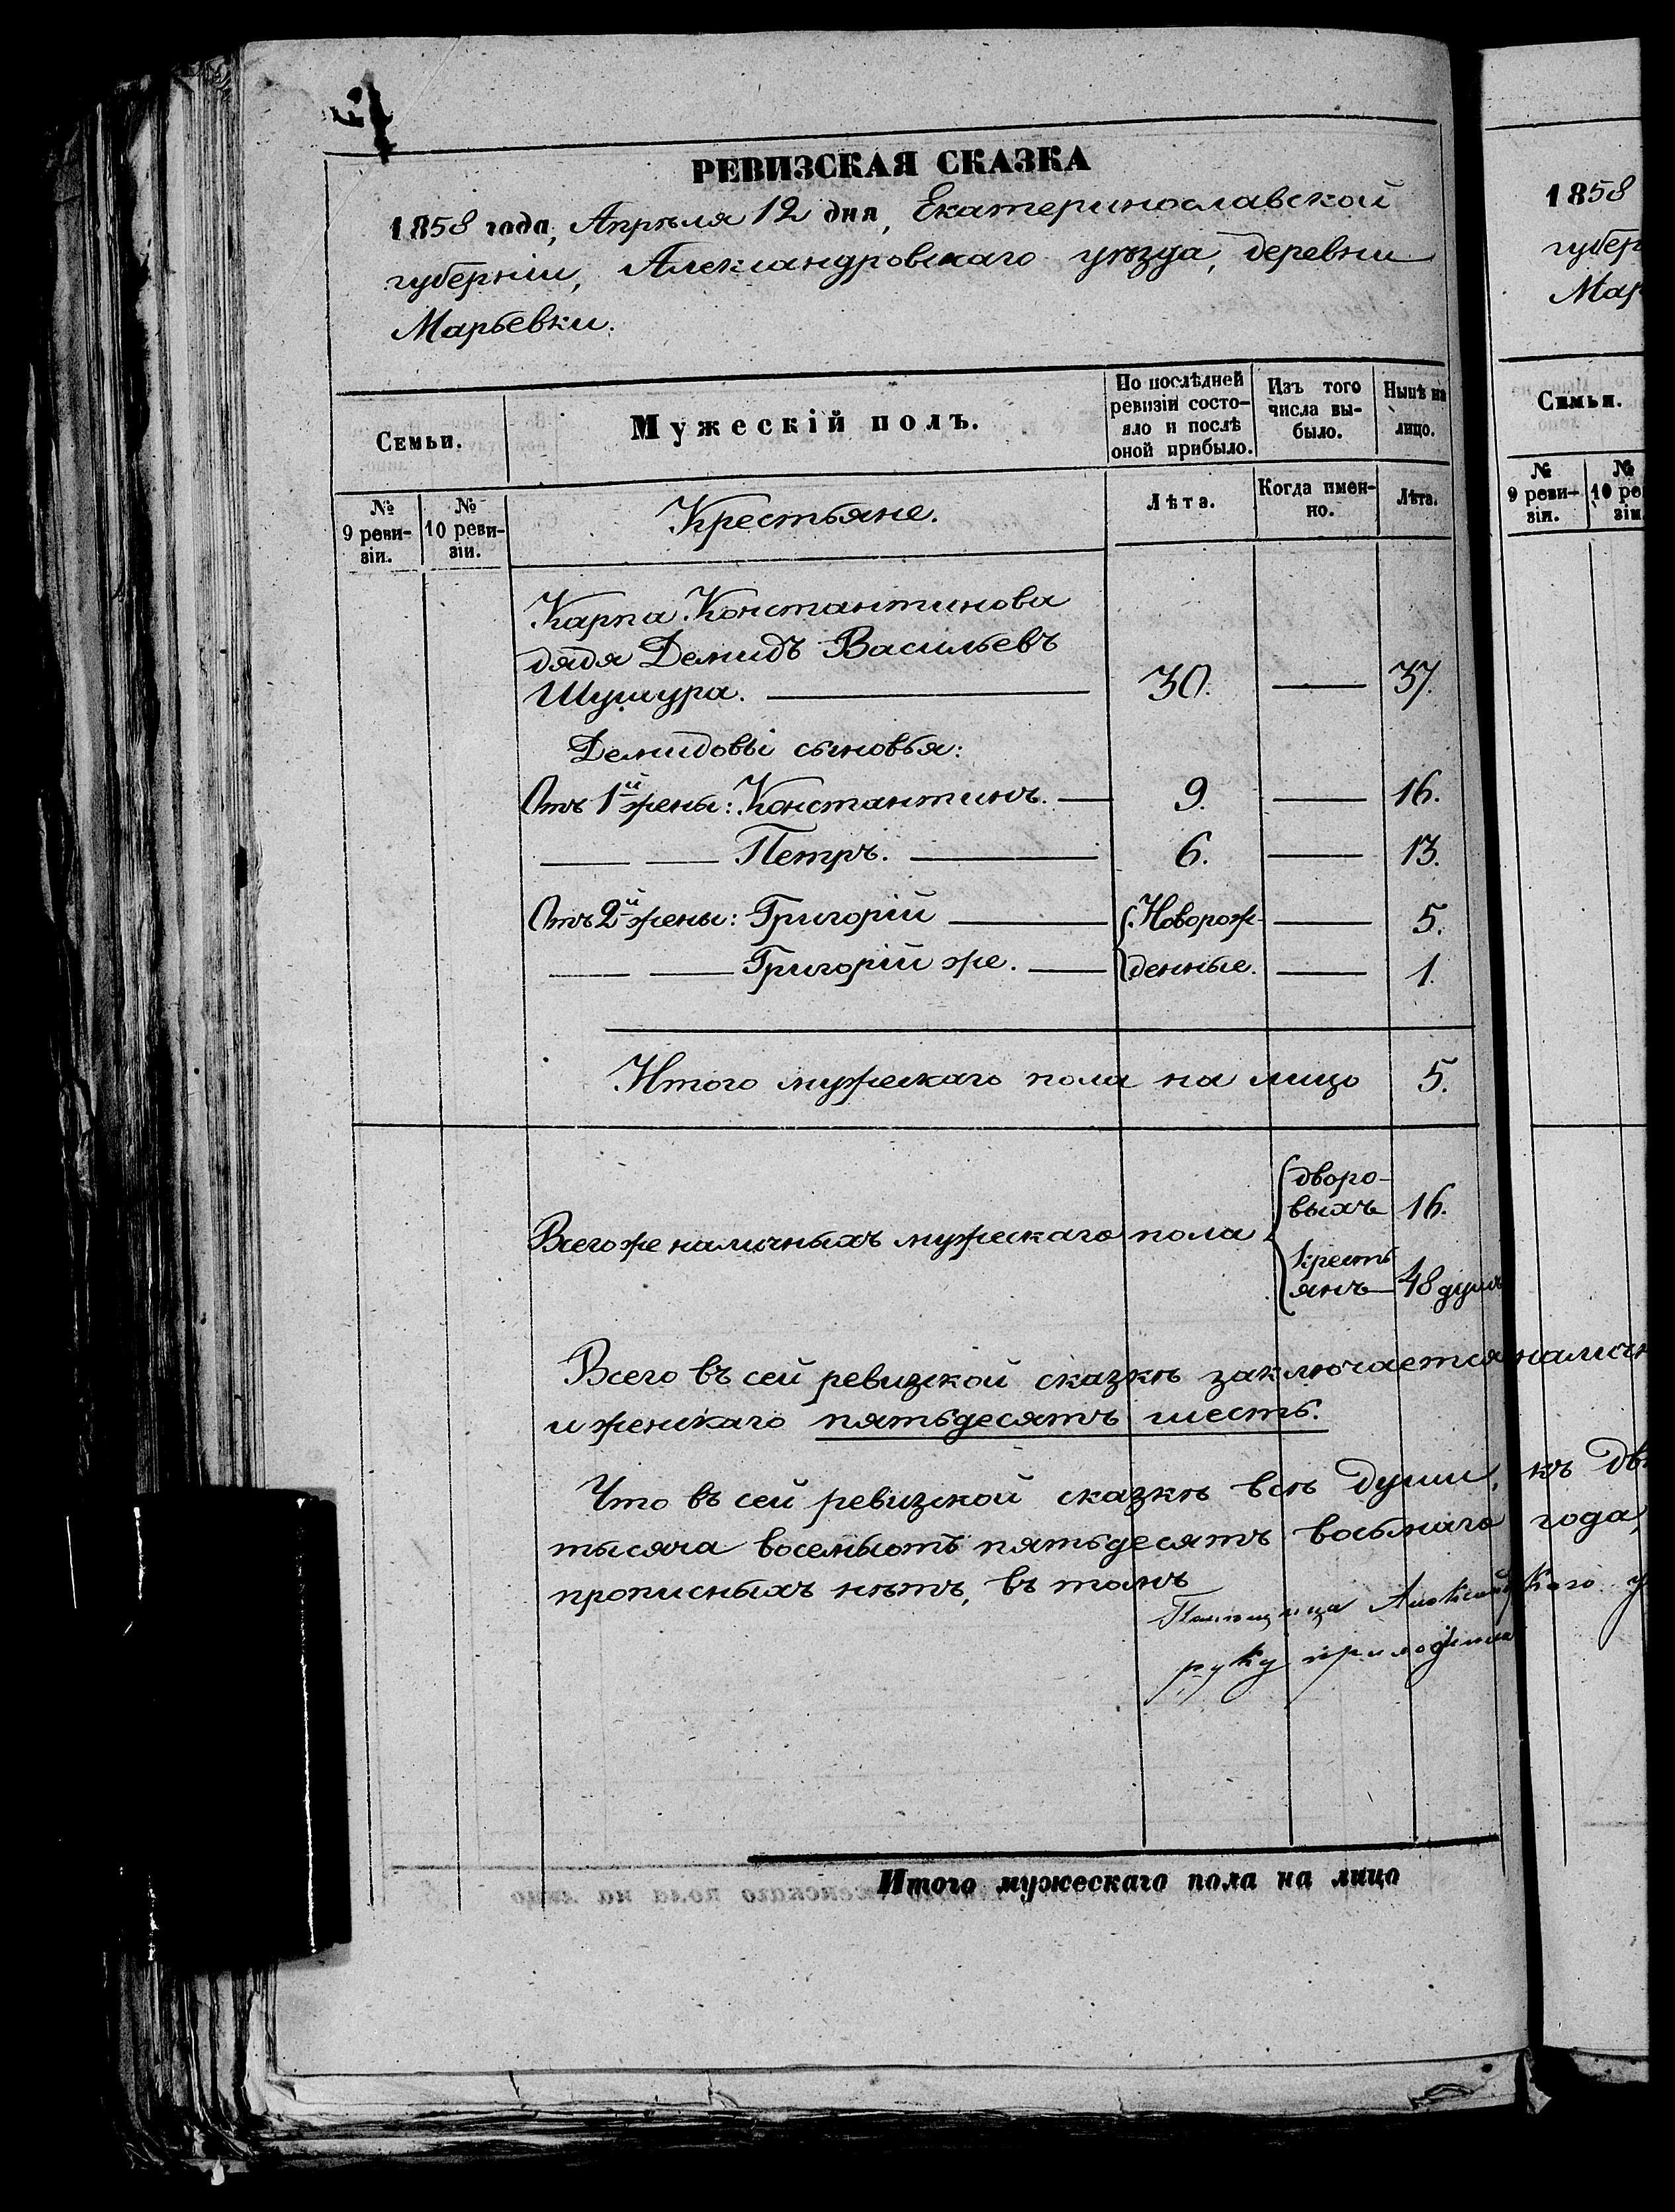 РЕВИЗСКАЯ СКАЗКА
1858 года, Апрѣля 12 дня, Екатеринославской
губерніи, Александровскаго уѣзда, деревни
Марьевки.
Семьи.
Мужескій полъ.
По послѣдней ревизіи состо-яло и послѣ оной прибыло.
Изъ того числа вы-было.
Нынѣ на лицо.
№ 9 реви-зіи.
№ 10 реви-зіи.
Крестьяне.
Лѣта.
Когда имен-но.
Лѣта.
Карпа Константинова
дядя Демидъ Васильевъ
Шушура. 30. 37.
Демидовы сыновья:
Отъ 1й жены: Константинъ. 9. 16.
Петръ. 6. 13.
Отъ 2й жены: Григорій Новорож- 5.
Григорій же. денные. 1.
Итого мужескаго пола на лицо 5.
дворо-
выхъ 16.
Всего же наличныхъ мужескаго пола
кресть
янъ 48 душъ
Всего въ сей ревизской сказкѣ заключается наличн
и женскаго пятьдесятъ шесть.
Что въ сей ревизской сказкѣ всѣ души, къ дв
тысяча восемьсотъ пятьдесятъ восьмаго года,
прописныхъ нѣтъ, въ томъ
Помѣщица
руку приложила
Итого мужескаго пола на лицо
1858
губер
Мар
Семьи.
№ 9 реви-зіи.
№ 10 ре зіи